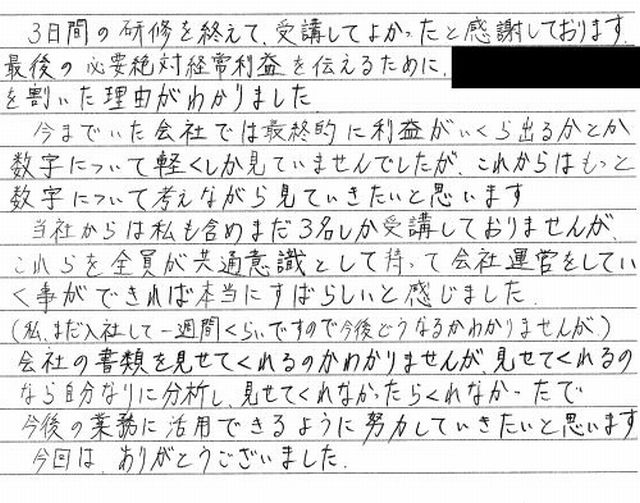 3日間の研修を終えて、受講してよかったと感謝しております。
最後の必要絶対経常利益を伝えるために、
を割いた理由がわかりました
今までいた会社では最終的に利益がいくら出るかとか
数字について軽くしか見ていませんでしたが、これからはもっと
数字について考えながら見ていきたいと思います
当社からは私も含めまだ3名しか受講しておりませんが、
これらを全員が共通意識として持って会社運営をしてい
く事ができれば本当にすばらしいと感じました。
(私、まだ入社して一週間くらいですので今後どうなるかわかりませんが、)
会社の書類を見せてくれるのかわかりませんが、見せてくれるの
なら自分なりに分析し、見せてくれなかったらくれなかったで
今後の業務に活用できるように努力していきたいと思います
今回は、ありがとうございました。